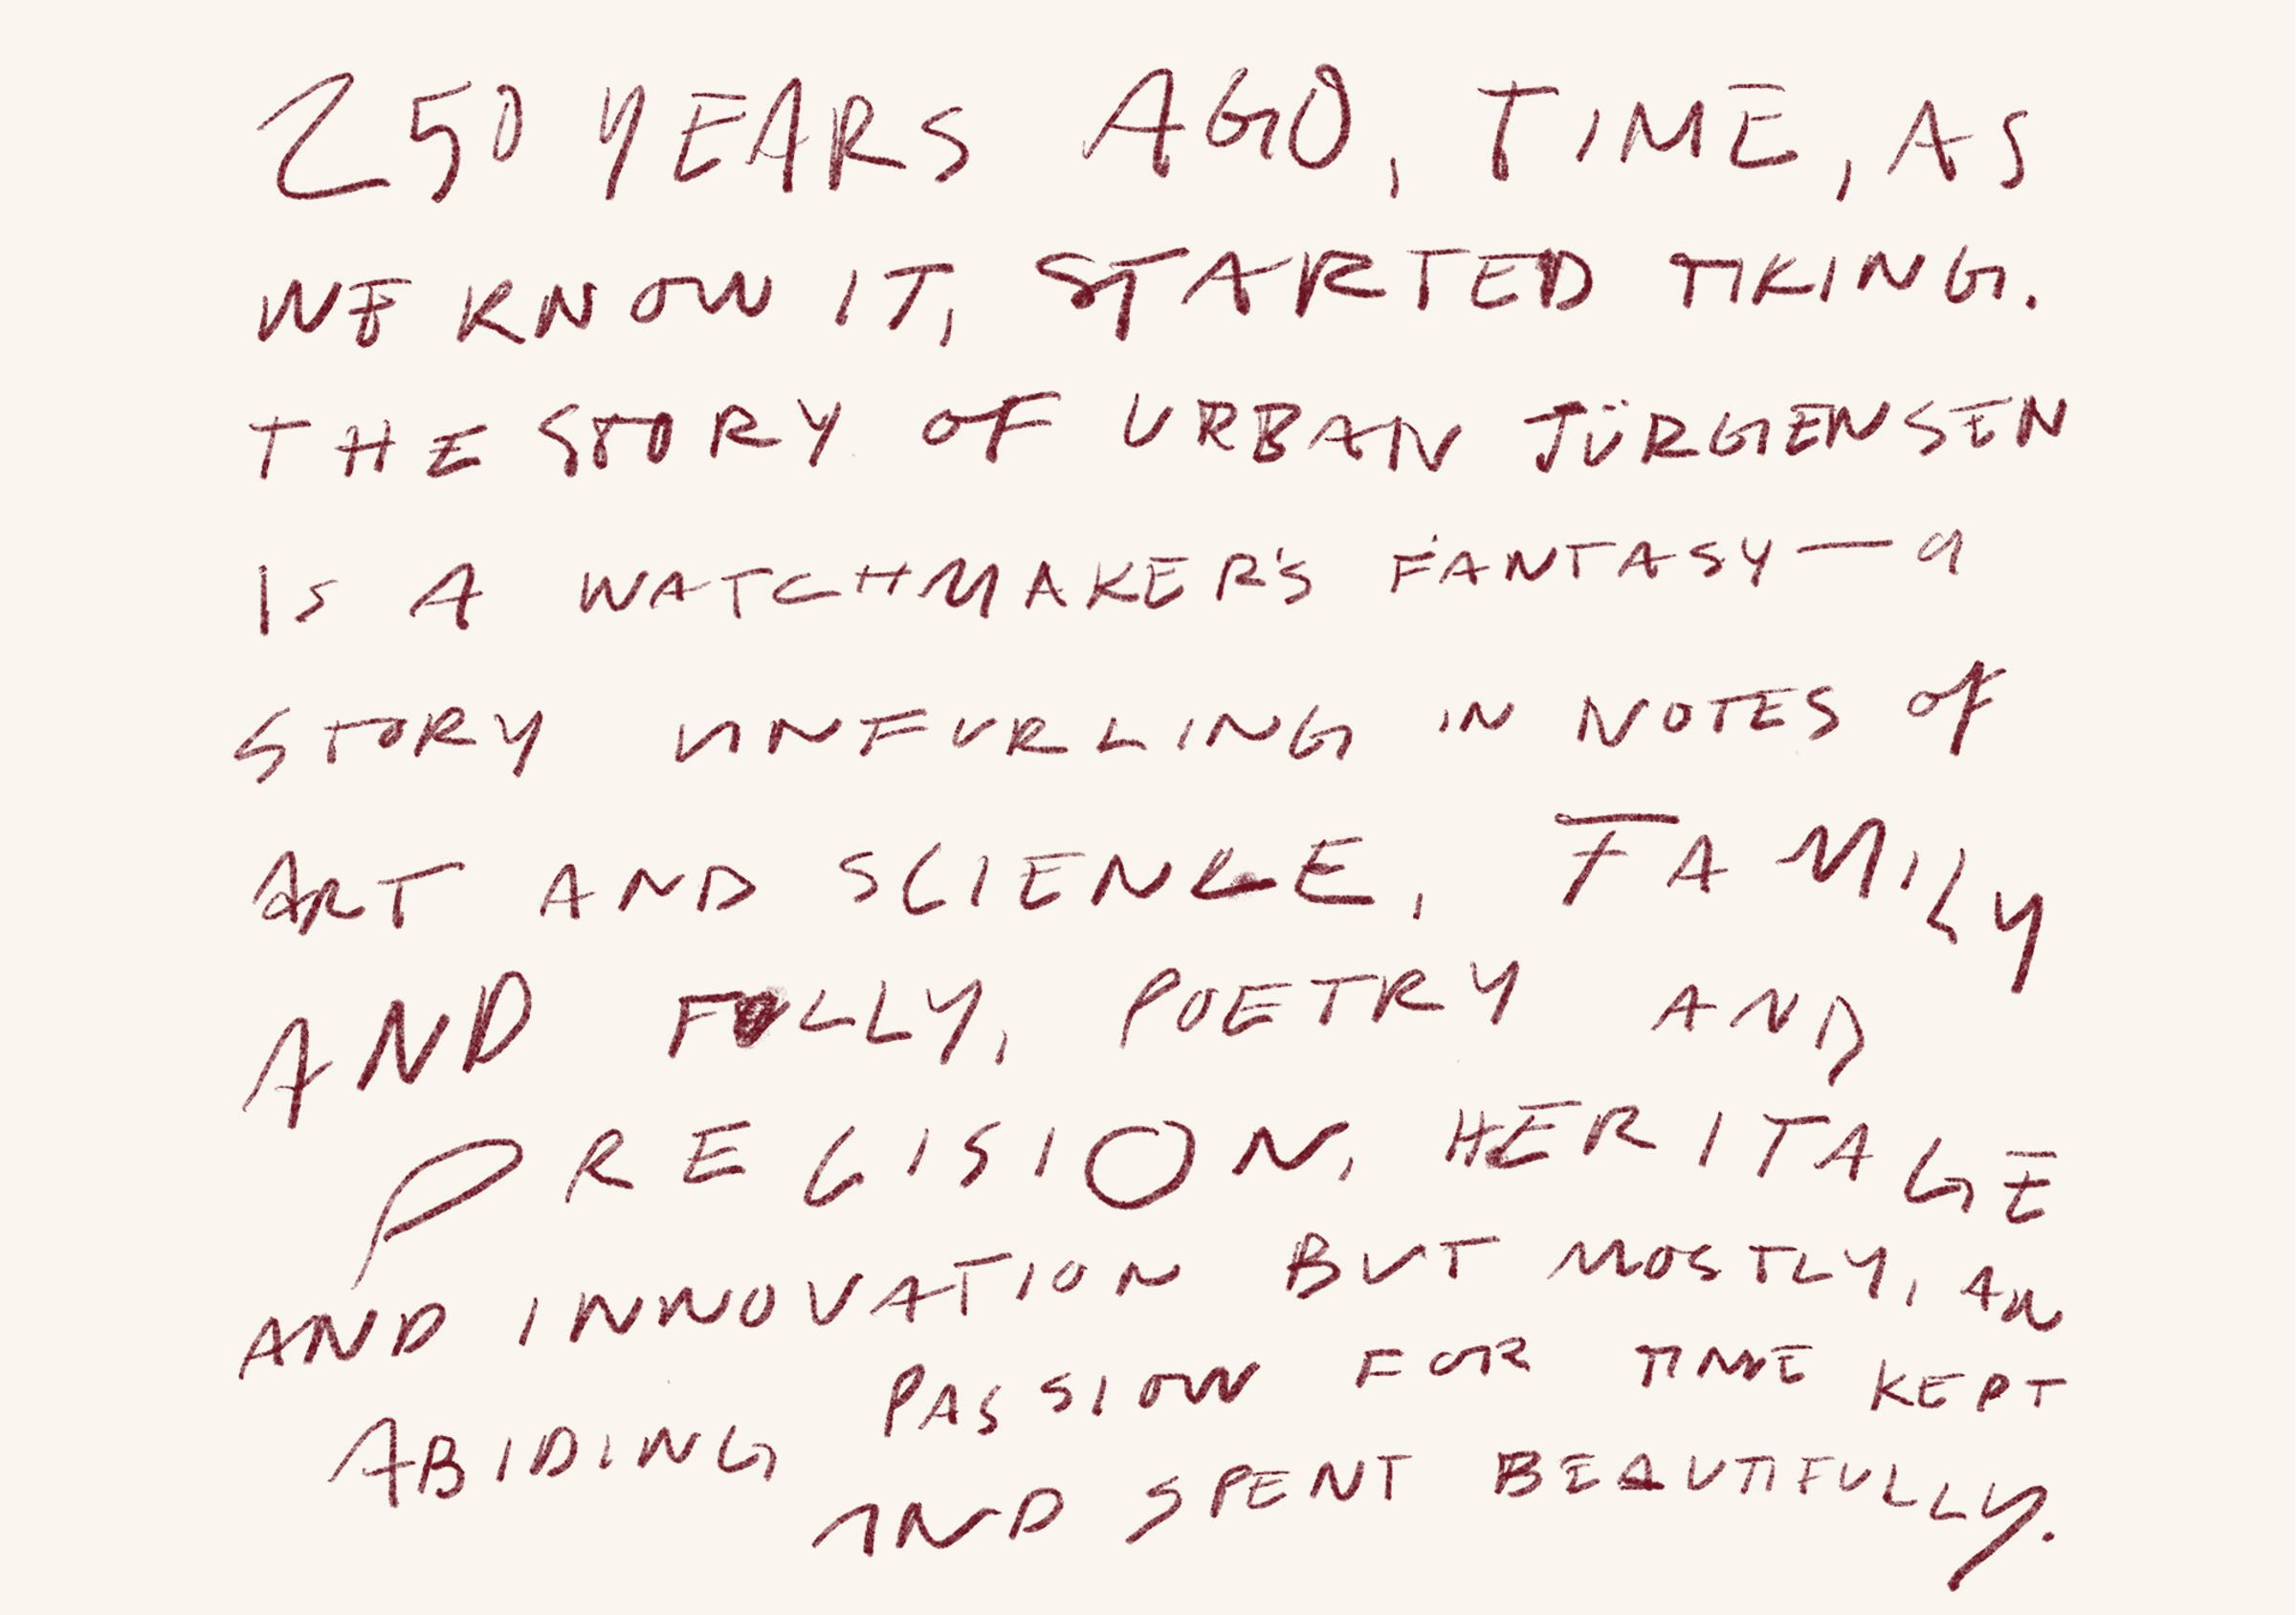 250 YEARS AGO, TIME, AS
WE KNOW IT, STARTED TIKING.
THE STORY OF URBAN JÜRGENSEN
IS A WATCHMAKER'S FANTASY—a
STORY UNFURLING IN NOTES Of
ART AND SCIENCE, FAMILY
AND FOLLY, POETRY AND
PRECISION, HERITAGE
AND INNOVATION BUT MOSTLY, AN
ABIDING PASSION FOR TIME KEPT
AND SPENT BEAUTIFULLY.